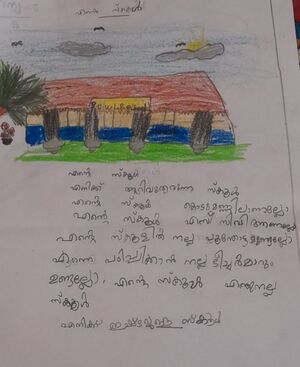 എന്റെ സ്കൂൾ
എന്റെ സ്കൂൾ
എനിക്ക് അറിവുതരുന്ന സ്കൂൾ
എന്റെ സ്കൂൾ
എന്റെ സ്കൂൾ എസ് സി വി
എന്റെ സ്കൂളിൽ നല്ല പൂന്തോട്ടമുണ്ടല്ലോ
എന്നെ പഠിപ്പിക്കാൻ നല്ല ടീച്ചർമാരും
ഉണ്ടല്ലോ, എന്റെ സ്കൂൾ എന്തുനല്ല
സ്കൂൾ
എനിക്ക് ഇഷ്ടമുള്ള സ്കൂൾ